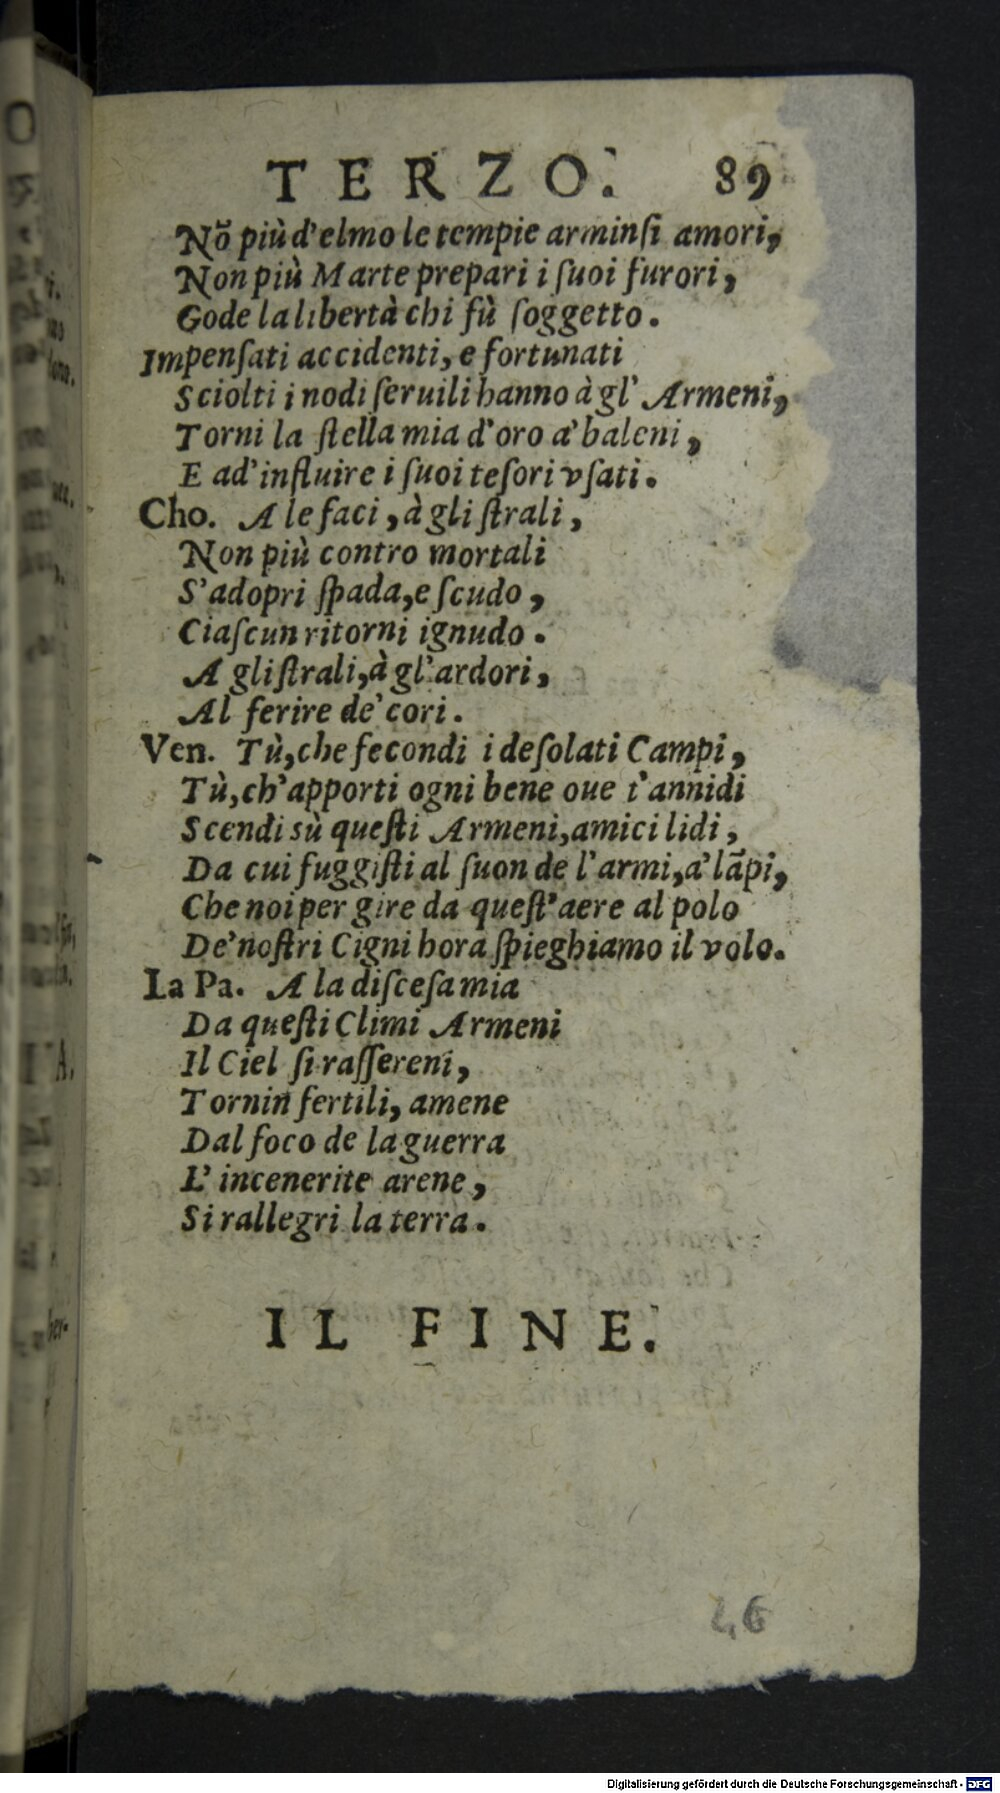 TERZO. 89
Nõ più d'elmo le tempie arminſi amori,
Non più Marte prepari i ſuoi furori,
Gode la libertà chi fù ſoggetto.
Impenſati accidenti, e fortunati
Sciolti i nodi ſeruili hanno à gl' Armeni,
Torni la ſtella mia d'oro a' baleni,
E ad' influire i ſuoi teſori vſati.
Cho. A le faci, à gli ſtrali,
Non più contro mortali
S'adopri ſpada, e ſcudo,
Ciaſcun ritorni ignudo.
A gli ſtrali, à gl'ardori,
Al ferire de' cori.
Ven. Tù, che fecondi i deſolati Campi,
Tù, ch'apporti ogni bene oue t'annidi
Scendi sù queſti Armeni, amici lidi,
Da cui fuggiſti al ſuon de l'armi, a' lãpi,
Che noi per gire da queſt'aere al polo
De' noſtri Cigni hora ſpieghiamo il volo.
La Pa. A la diſceſa mia
Da queſti Climi Armeni
Il Ciel ſi raſſereni,
Tornin fertili, amene
Dal foco de la guerra
L' incenerite arene,
Si rallegri la terra.
IL FINE.
46
Digitalisierung gefördert durch die Deutsche Forschungsgemeinschaft - DFG